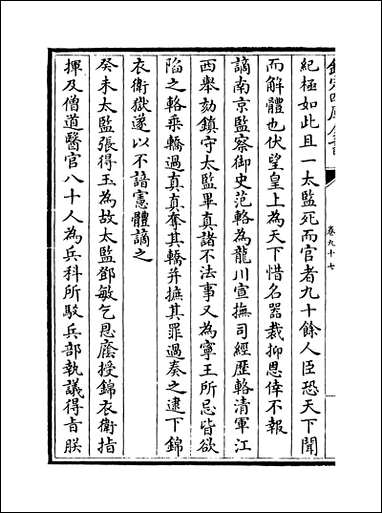 欽定四庫全書
卷九十七
紀極如此且一太監死而官者九十餘人臣恐天下聞
而解體也伏望皇上為天下惜名器裁抑恩倖不報
謫南京監察御史范輅為龍川宣撫司經歷輅清軍江
西舉劾鎮守太監畢真諸不法事又為寧王所忌皆欲
陷之輅乘轎過真真奪其轎并摭其罪過奏之逮下錦
衣衛獄遂以不諳憲體謫之
癸未太監張得玉為故太監鄧敏乞恩廕授錦衣衛指
揮及僧道醫官八十人為兵科所駁兵部執議得旨朕